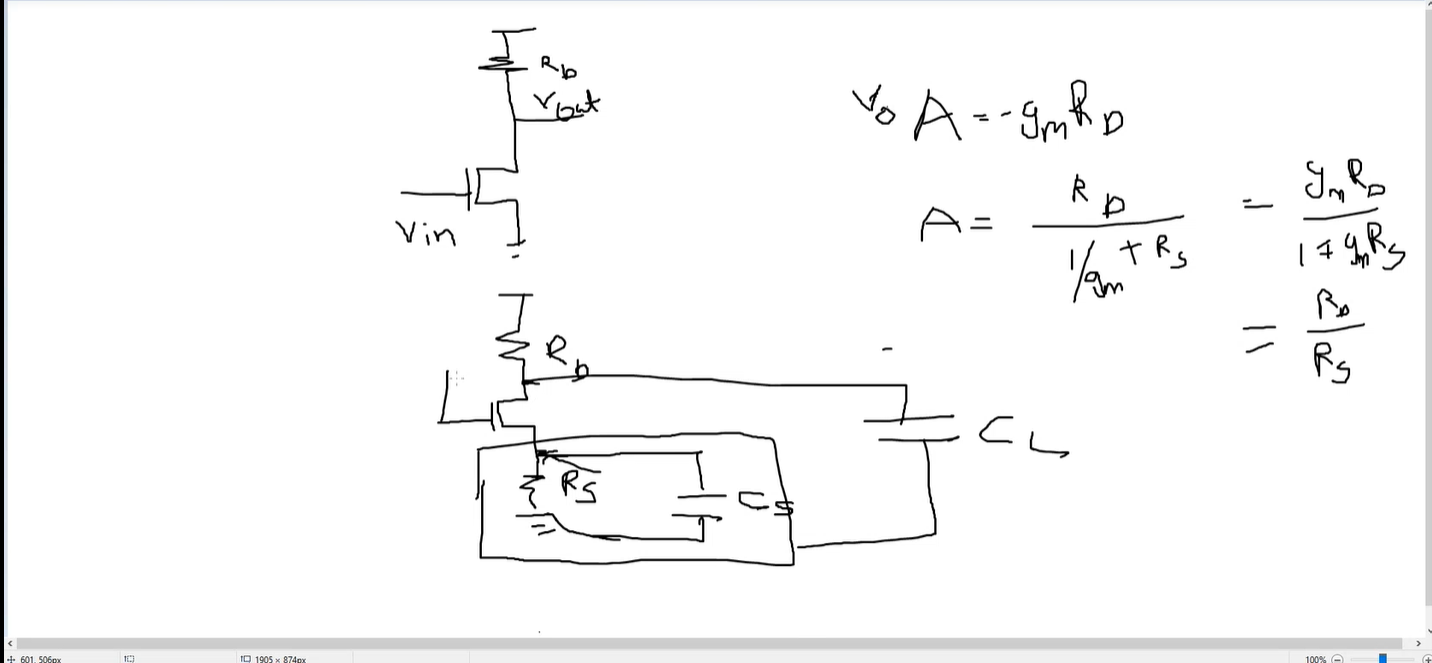 R_D
Vout
Vin
V_o A = -g_m R_D
A = R_D / (1/g_m + R_S) = g_m R_D / (1 + g_m R_S)
= R_D / R_S
R_D
C_L
R_S
C_S
601, 506px
1905 × 874px
100%